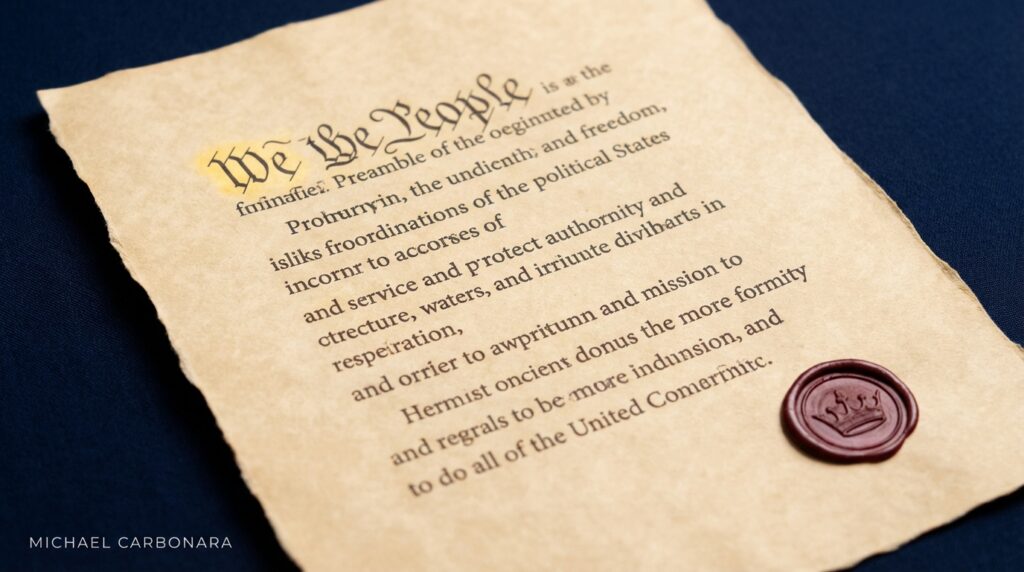 We the People is a the
Preamble of the oeginnted by
Proburryin, the undienth; and freedom,
isliks froordinations of the political States
incornr to accorses of
and service and protect authornity and
ctrecture, waters, and irriunte divibarts in
respeiration,
and orrier to awpritunn and mission to
Hermist oncient donus the more formity
and regrals to be more indunsion, and
to do all of the United
MICHAEL CARBONARA